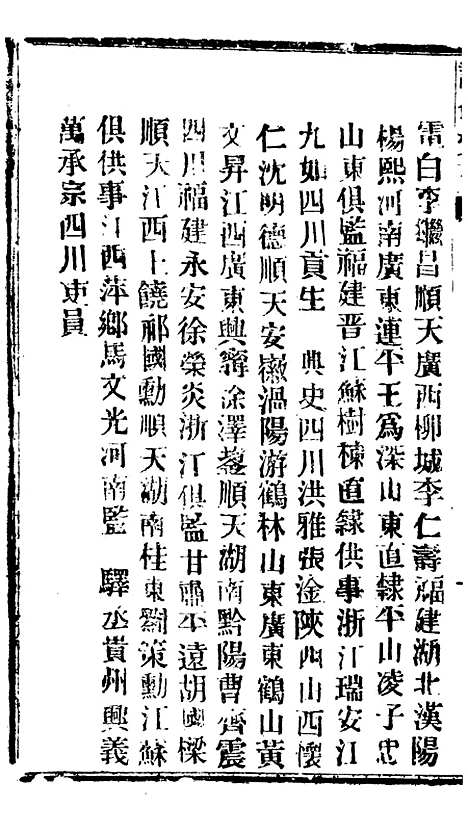 電白李繼昌順天廣西柳城李仁壽福建湖北漢陽
楊熙河南廣東連平王爲深山東直隸平山凌子忠
山東俱監福建晉江蘇樹棟直隸供事浙江瑞安江
九如四川貢生 典史四川洪雅張淦陝西山西懷
仁沈明德順天安徽渦陽游鶴林山東廣東鶴山黃
文昇江西廣東興寧涂澤鋆順天湖南黔陽曹齊震
四川福建永安徐榮炎浙江俱監甘肅平遠胡國樑
順天江西上饒祁國勳順天湖南桂東劉策勳江蘇
俱供事江西萍鄉馬文光河南監 驛丞貴州興義
萬承宗四川吏員